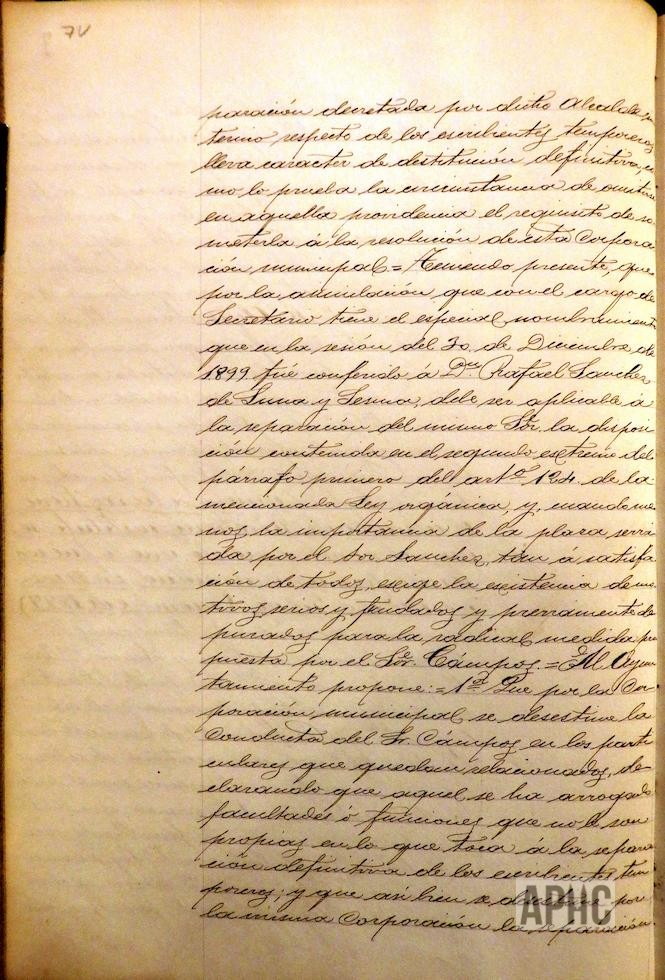 7v
paración decretada por dicho Alcalde in
terino respecto de los escribientes temporeros
lleva caracter de destitución definitiva, co
mo lo prueba la circunstancia de omitirse
en aquella providencia el requisito de so
meterla á la resolución de esta Corpora
ción municipal = Teniendo presente, que
por la asimilación, que con el cargo de
Secretario tiene el especial nombramiento
que en la sesión del 30 de Diciembre de
1899 fué conferido á Dn Rafael Sanchez
de Luna y Lesma, debe ser aplicable á
la separación del mismo Sor. la disposi
ción contenida en el segundo extremo del
párrafo primero del arto 124 de la
mencionada Ley orgánica y, cuando me
nos la importancia de la plaza servi
da por el Sor Sanchez, tan á satisfa
ción de todos, exige la existencia de mo
tivos serios y fundados y previamente de
purados para la radical medida pro
puesta por el Sor. Cámpos = Al Ayun
tamiento propone: = 1º Que por la Cor
poración municipal se desestime la
Conducta del Sr. Cámpos en los parti
culares que quedan relacionados, de
clarando que aquel se ha arrogado
facultades ó funciones que no le son
propias en lo que toca á la separa
ción definitiva de los escribientes tem
poreros; y que así bien se desestime por
la misma Corporación la separación
APHC